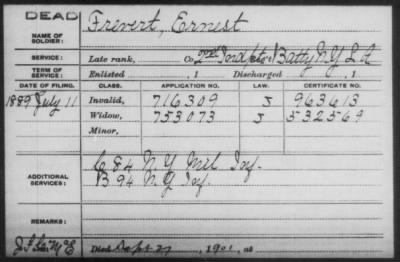 DEAD
NAME OF SOLDIER: Frevert, Ernest
SERVICE: Late rank, Co. 2nd Indpt Batty N Y L A
TERM OF SERVICE: Enlisted , 1 Discharged , 1
DATE OF FILING. CLASS. APPLICATION NO. LAW. CERTIFICATE NO.
1889 July 11 Invalid, 716309 J 963613
Widow, 753073 J 532569
Minor,
C 84 N Y Mil Inf.
ADDITIONAL SERVICES: B 94 N Y Inf.
REMARKS:
Died Sept 27, 1901, at